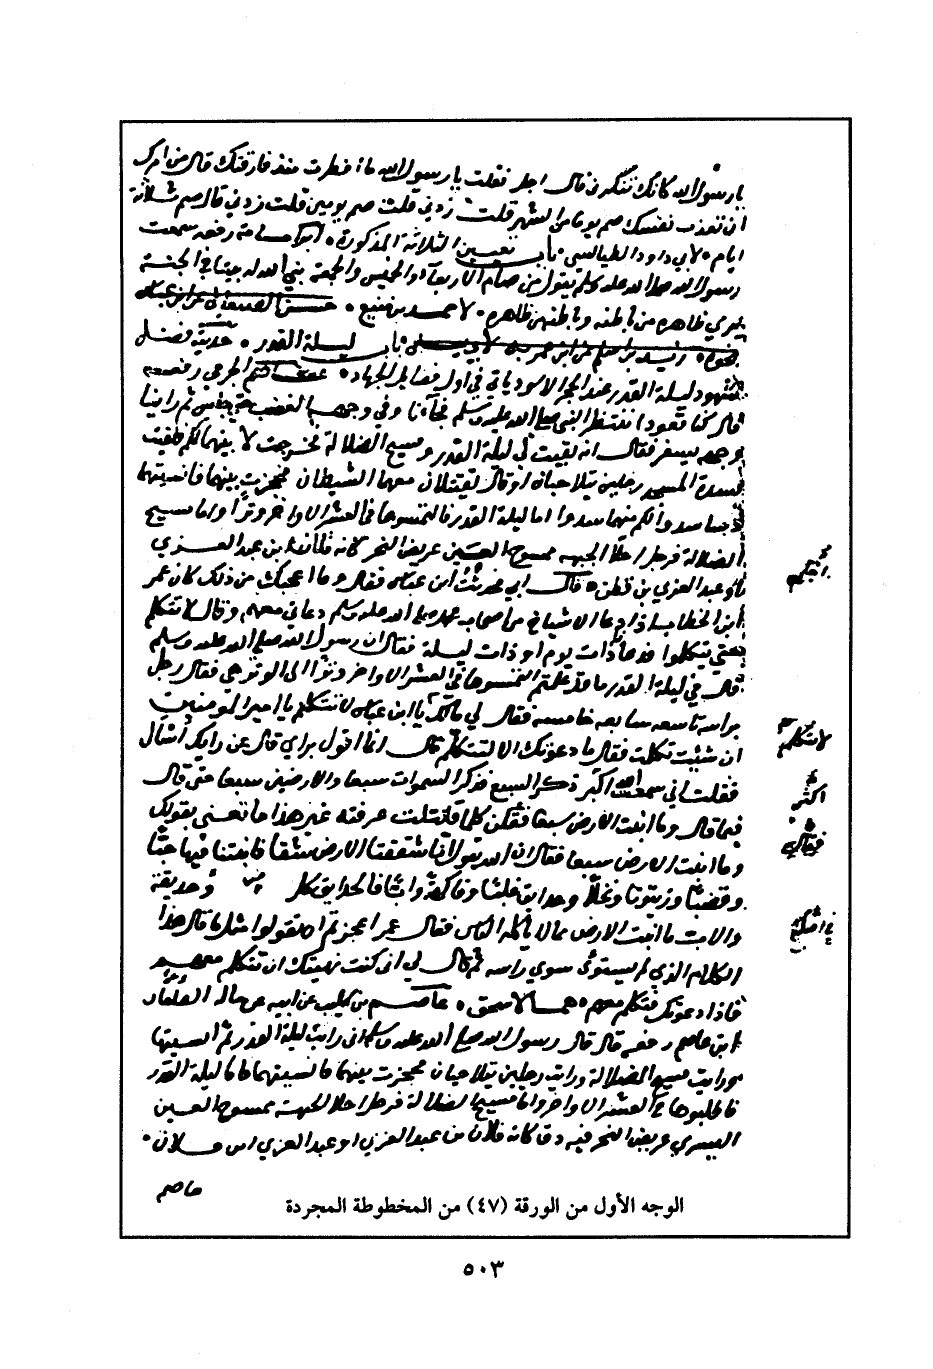 يا رسول الله كانك تنكرني قال اجل فقلت يا رسول الله ما افطرت منذ فارقتك قال من امرك
ان تعذب نفسك صم يوما من الشهر قلت زدني قلت صم يومين قلت زدني قال صم ثلاثة
ايام لابي داود الطيالسي باب تعيين الثلاثة المذكورة رفعه سمعت
رسول الله صلى الله عليه وسلم يقول من صام الاربعاء والخميس والجمعة بنى الله له بيتا في الجنة
يرى ظاهره من باطنه وباطنه من ظاهره لاحمد بن منيع
باب ليلة القدر فضل
شهود ليلة القدر عند الحجر الاسود ياتي في اول فضايل الجهاد الجرمي رفعه
قال كنا قعودا ننتظر النبي صلى الله عليه وسلم فجاءنا وفي وجهه الغضب حتى جلس ثم راينا
وجهه يسفر فقال انه بينت لي ليلة القدر ومسيح الضلالة فخرجت لابينهما لكم فلقيت
بسدة المسجد رجلين يتلاحيان او قال يقتتلان معهما الشيطان فحجزت بينهما فانسيتهما
وسأشدو لكم منهما شدوا اما ليلة القدر فالتمسوها في العشر الاواخر وترا واما مسيح
الضلالة فرجل اجلا الجبهه ممسوح العين عريض النحر كانه فلان بن عبد العزى
او عبد العزى بن قطن قال ابي فحدثت ابن عباس فقال وما اعجبك من ذلك كان عمر
ابن الخطاب اذا دعا الاشياخ من اصحاب محمد صلى الله عليه وسلم دعاني معهم وقال لا تتكلم
حتى يتكلموا فدعانا ذات يوم او ذات ليلة فقال ان رسول الله صلى الله عليه وسلم
قال في ليلة القدر ما قد علمتم التمسوها في العشر الاواخر وترا اي الوتر هي فقال رجل
برايه تاسعه سابعه خامسه فقال لي مالك يا ابن عباس لا تتكلم يا امير المومنين
ان شئت تكلمت فقال ما دعوتك الا لتتكلم قال انما اقول برايي قال عن رايك اسال
فقلت اني سمعت الله اكبر ذكر السبع فذكر السموات سبعا والارضين سبعا حتى قال
فيما قال وما انبتت الارض سبعا فقلت كلما قلت عرفته غير هذا ما تعني بقولك
وما انبتت الارض سبعا فقال ان الله يقول انا شققنا الارض شقا فانبتنا فيها حبا
وقضبا وزيتونا ونخلا وحدايق غلبا وفاكهة وابا فالحدايق كل وحديقة
والاب ما انبتت الارض مما لا ياكله الناس فقال عمر اعجزتم ان تقولوا مثل ما قال هذا
الغلام الذي لم يستو سوى راسه ثم قال لي اني كنت نهيتك ان تتكلم معهم
فاذا دعوتك فتكلم معهم هما لاسحق عاصم بن كليب عن ابيه عن خاله الفلتان
ابن عاصم رفعه قال قال رسول الله صلى الله عليه وسلم اني رايت ليلة القدر ثم انسيتها
ورايت مسيح الضلالة ورايت رجلين يتلاحيان فحجزت بينهما فانسيتها فاما ليلة القدر
فاطلبوها في العشر الاواخر واما مسيح الضلالة فرجل اجلا الجبهة ممسوح العين
اليسرى عريض النحر فيه دفا كانه فلان بن عبد العزى او عبد العزى ابن فلان
عاصم
لا تتكلم
اكثر
فقال
الوجه الأول من الورقة (٤٧) من المخطوطة المجردة
٥٠٣